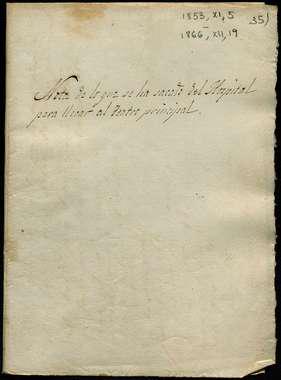 1853, XI, 5
35)
1866, XII, 19
Nota de lo que se ha sacado del Hospital
para llevar al teatro principal.